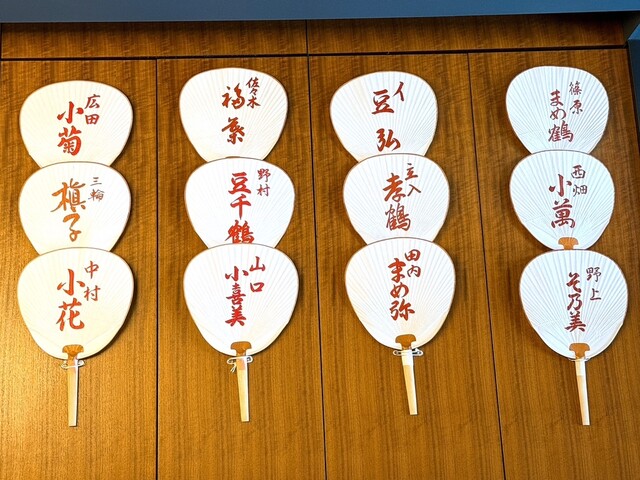 広田
小菊
三輪
槇子
中村
小花
佐々木
福葉
野村
豆千鶴
山口
小喜美
イ
豆弘
立入
孝鶴
田内
まめ弥
篠原
まめ鶴
西畑
小萬
野上
そ乃美